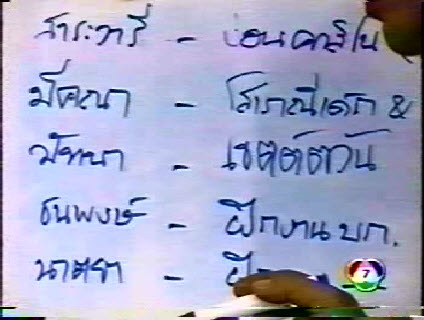 สาระวารี - บ่อนคาสิโน
มีคณา - โสเภณีเด็ก &
มัทนา - เขตต์ตวัน
ธนพงษ์ - ฝึกงาน บก.
นาตยา - ฝึก
7